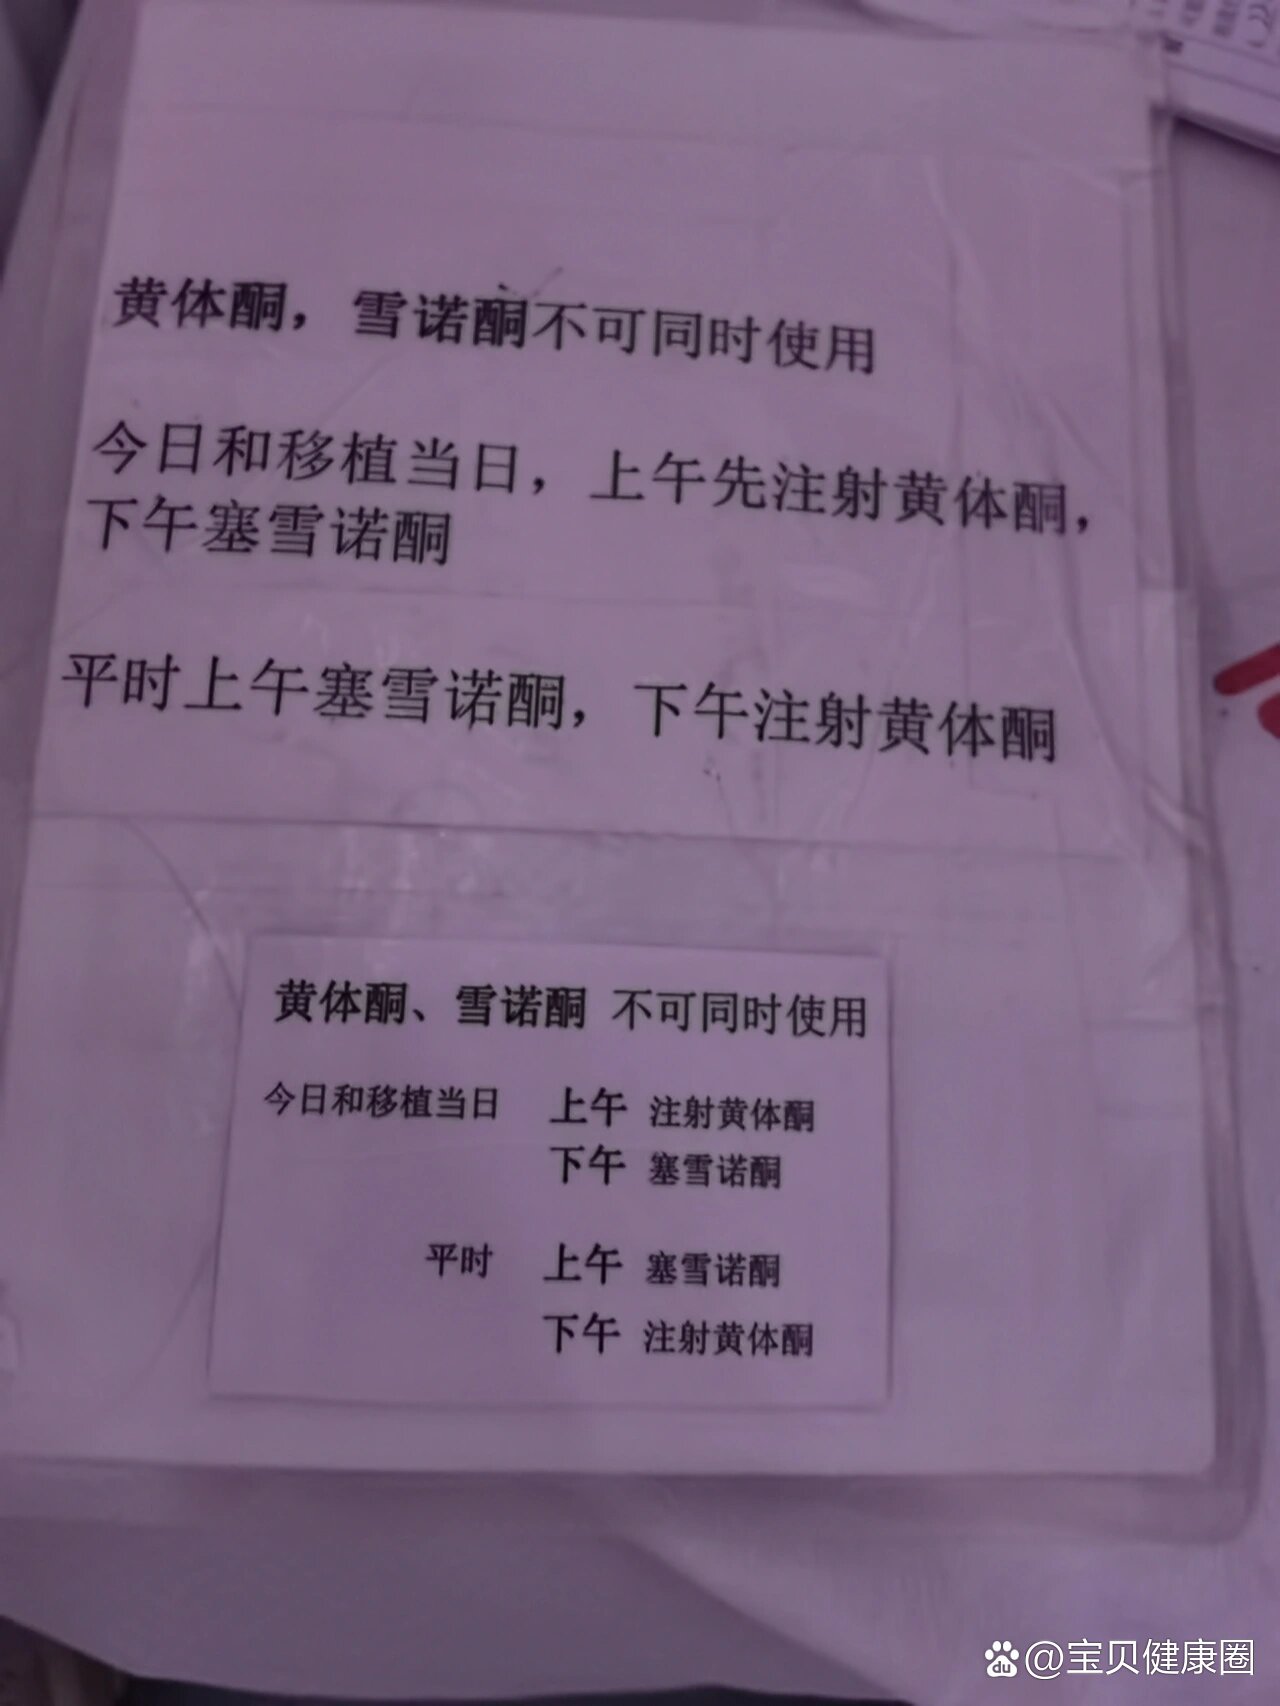 黄体酮，雪诺酮不可同时使用
今日和移植当日，上午先注射黄体酮，
下午塞雪诺酮
平时上午塞雪诺酮，下午注射黄体酮
黄体酮、雪诺酮 不可同时使用
今日和移植当日 上午 注射黄体酮
下午 塞雪诺酮
平时 上午 塞雪诺酮
下午 注射黄体酮
du @宝贝健康圈